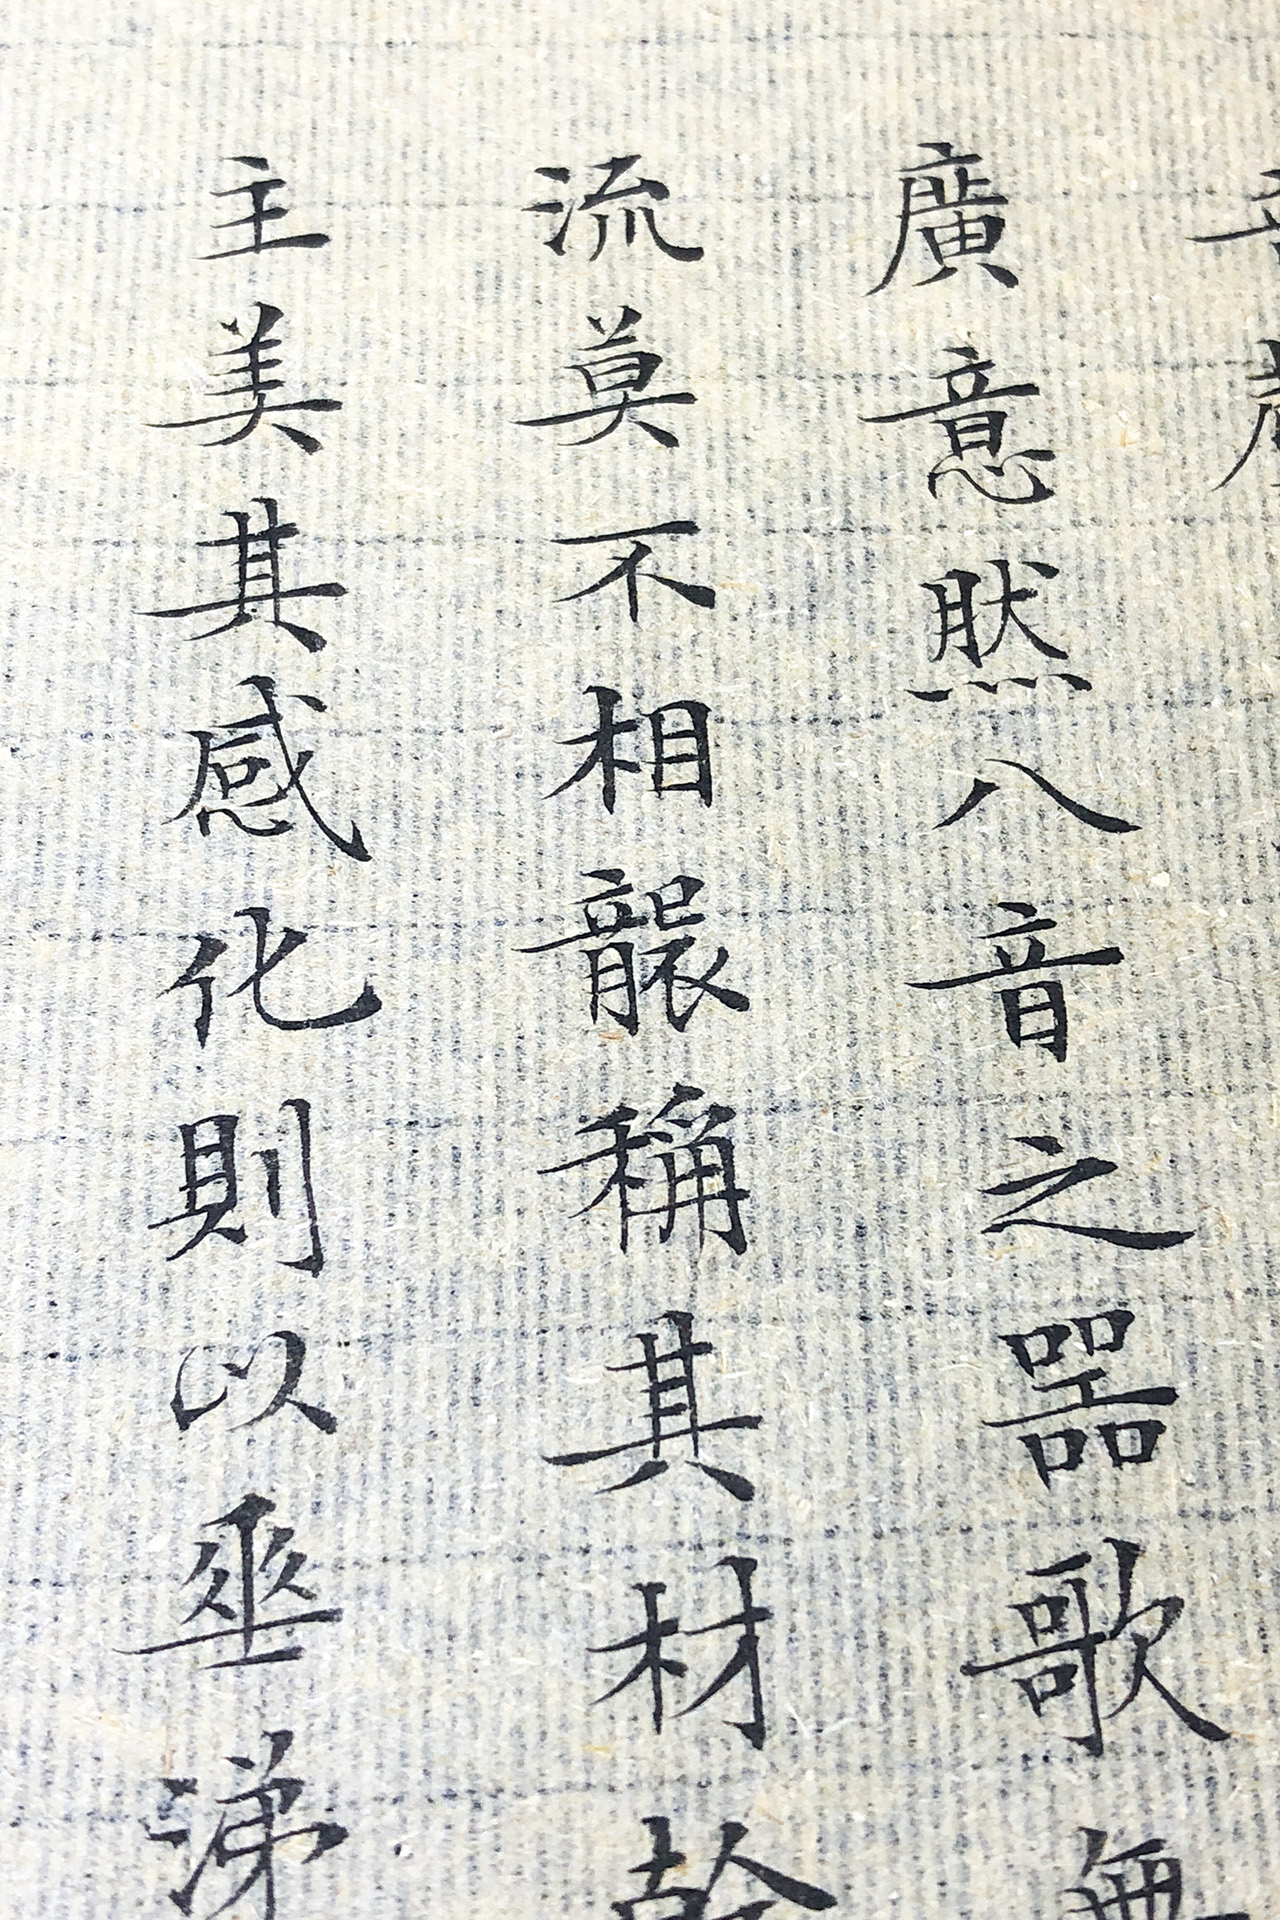 廣意然八音之器歌無
流莫不相襲稱其材幹
主美其感化則以垂涕